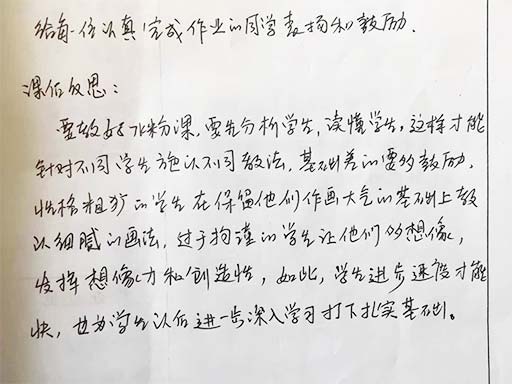 给每一位认真完成作业的同学表扬和鼓励.
课后反思：
要教好水粉课，要先分析学生，读懂学生，这样才能
针对不同学生施以不同教法，基础差的要多鼓励，
性格粗犷的学生在保留他们作画大气的基础上教
以细腻的画法，过于拘谨的学生让他们多想像，
发挥想像力和创造性，如此，学生进步速度才能
快，也为学生以后进一步深入学习打下扎实基础。